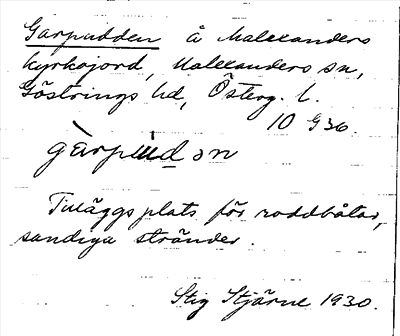 Garpudden å Malexanders
kyrkojord, Malexanders sn,
Göstrings hd, Österg. l.
10 G36.
gàrpùdən
Tilläggsplats för roddbåtar,
sandiga stränder.
Stig Stjärne 1930.